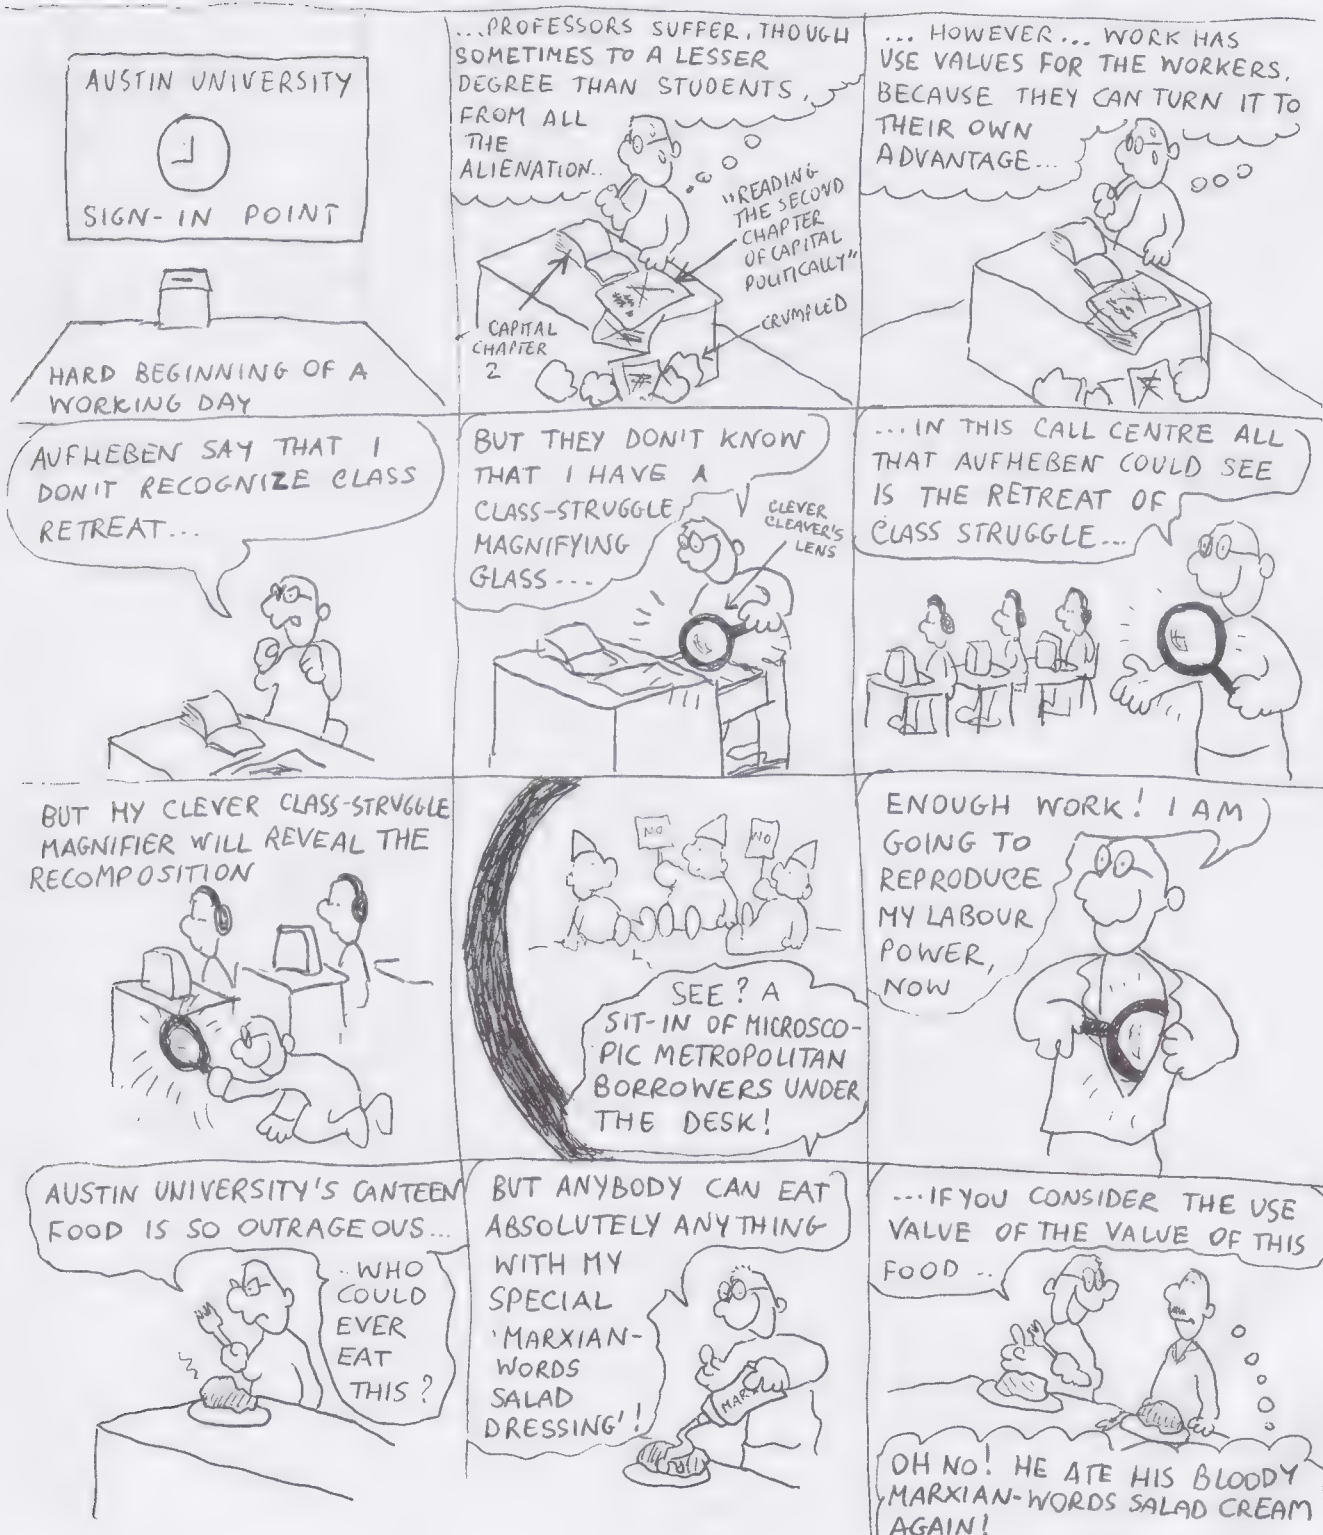 AUSTIN UNIVERSITY
SIGN-IN POINT
HARD BEGINNING OF A
WORKING DAY
...PROFESSORS SUFFER, THOUGH
SOMETIMES TO A LESSER
DEGREE THAN STUDENTS,
FROM ALL
THE
ALIENATION..
"READING
THE SECOND
CHAPTER
OF CAPITAL
POLITICALLY"
CAPITAL
CHAPTER
2
CRUMPLED
... HOWEVER... WORK HAS
USE VALUES FOR THE WORKERS,
BECAUSE THEY CAN TURN IT TO
THEIR OWN
ADVANTAGE...
AUFHEBEN SAY THAT I
DON'T RECOGNIZE CLASS
RETREAT...
BUT THEY DON'T KNOW
THAT I HAVE A
CLASS-STRUGGLE
MAGNIFYING
GLASS...
CLEVER
CLEAVER'S
LENS
...IN THIS CALL CENTRE ALL
THAT AUFHEBEN COULD SEE
IS THE RETREAT OF
CLASS STRUGGLE...
BUT MY CLEVER CLASS-STRUGGLE
MAGNIFIER WILL REVEAL THE
RECOMPOSITION
NO
NO
SEE? A
SIT-IN OF MICROSCO-
PIC METROPOLITAN
BORROWERS UNDER
THE DESK!
ENOUGH WORK! I AM
GOING TO
REPRODUCE
MY LABOUR
POWER,
NOW
AUSTIN UNIVERSITY'S CANTEEN
FOOD IS SO OUTRAGEOUS...
..WHO
COULD
EVER
EAT
THIS?
BUT ANYBODY CAN EAT
ABSOLUTELY ANYTHING
WITH MY
SPECIAL
'MARXIAN-
WORDS
SALAD
DRESSING'!
MARX
...IF YOU CONSIDER THE USE
VALUE OF THE VALUE OF THIS
FOOD ..
OH NO! HE ATE HIS BLOODY
MARXIAN-WORDS SALAD CREAM
AGAIN!